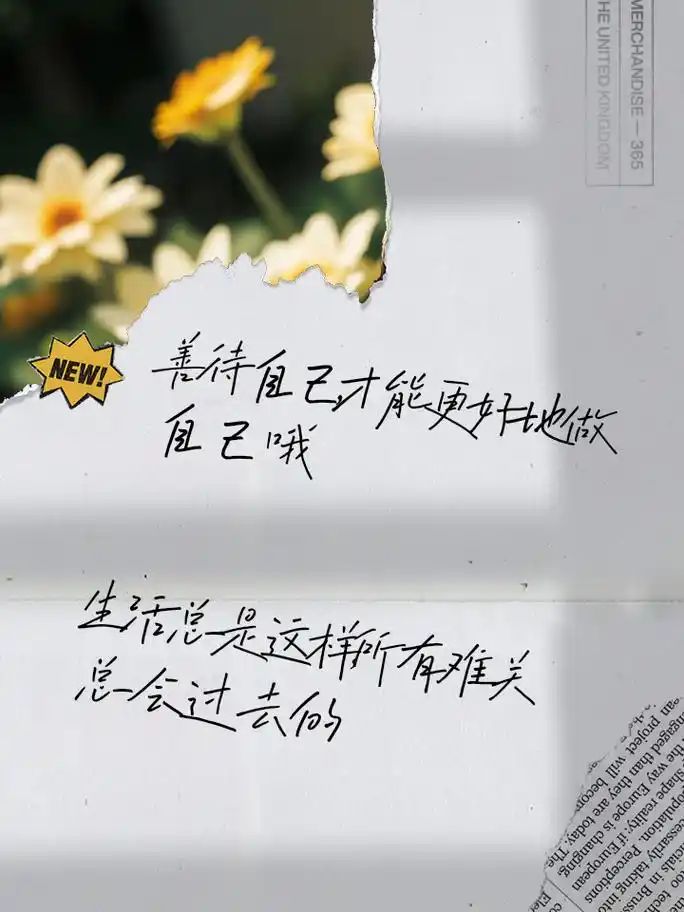 MERCHANDISE — 365
THE UNITED KINGDOM
NEW!
善待自己,才能更好地做
自己哦
生活总是这样所有难关
总会过去的
project will becom
engaged than they are today. The
the way Europe is changing,
shape reality: if European
opulation. Perceptions
cessarily taking into
cials in Bruss
too tech